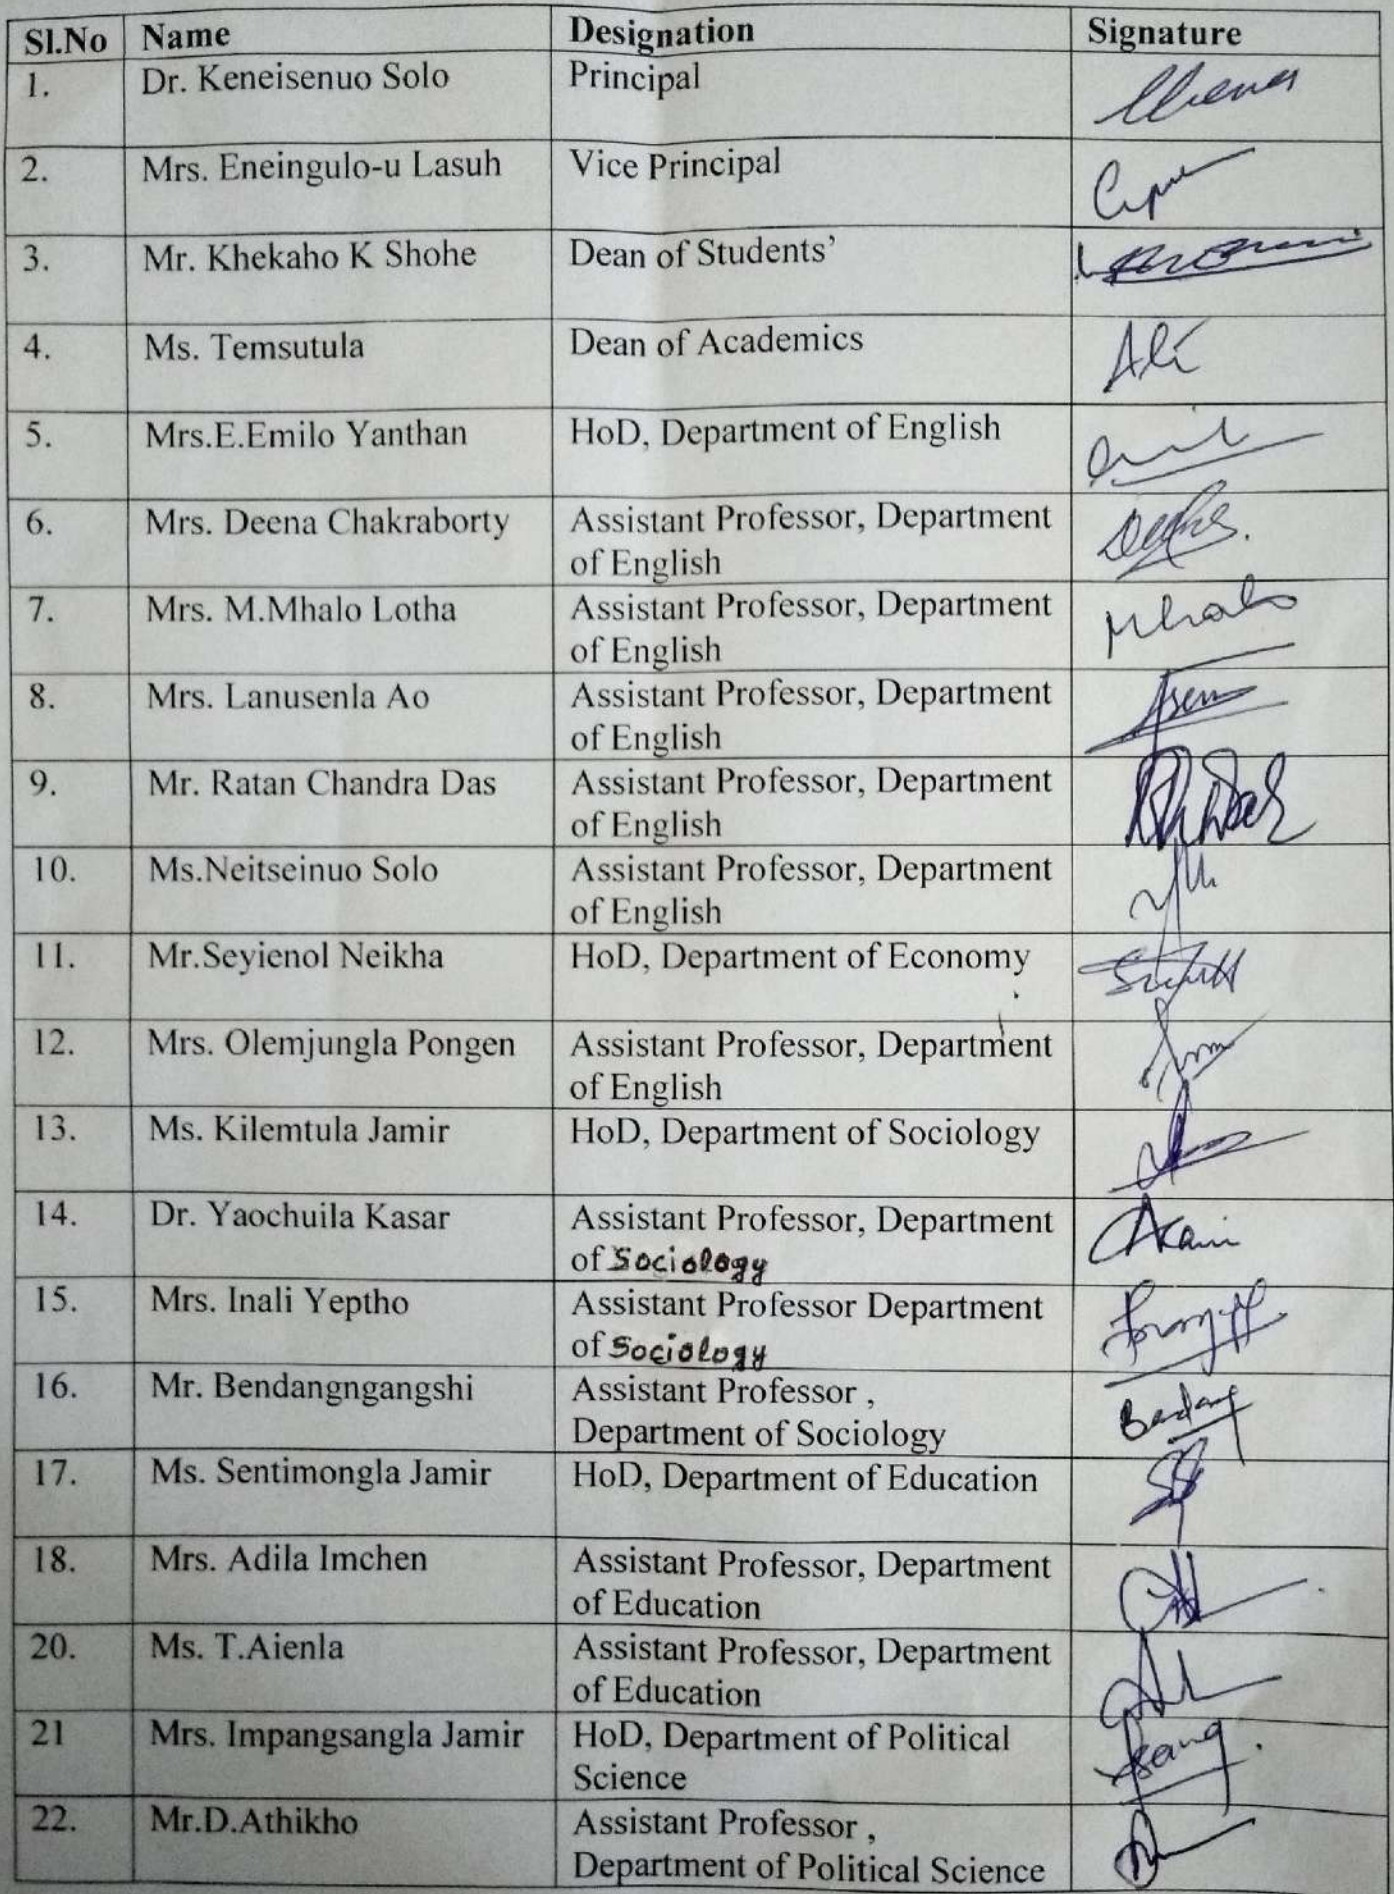 Sl.No Name Designation Signature
1. Dr. Keneisenuo Solo Principal
2. Mrs. Eneingulo-u Lasuh Vice Principal
3. Mr. Khekaho K Shohe Dean of Students’
4. Ms. Temsutula Dean of Academics
5. Mrs.E.Emilo Yanthan HoD, Department of English
6. Mrs. Deena Chakraborty Assistant Professor, Department
of English
7. Mrs. M.Mhalo Lotha Assistant Professor, Department Mhalo
of English
8. Mrs. Lanusenla Ao Assistant Professor, Department
of English
9. Mr. Ratan Chandra Das Assistant Professor, Department
of English
10. Ms.Neitseinuo Solo Assistant Professor, Department
of English
11. Mr.Seyienol Neikha HoD, Department of Economy
12. Mrs. Olemjungla Pongen Assistant Professor, Department
of English
13. Ms. Kilemtula Jamir HoD, Department of Sociology
14. Dr. Yaochuila Kasar Assistant Professor, Department
of Sociology
15. Mrs. Inali Yeptho Assistant Professor Department
of Sociology
16. Mr. Bendangngangshi Assistant Professor ,
Department of Sociology
17. Ms. Sentimongla Jamir HoD, Department of Education
18. Mrs. Adila Imchen Assistant Professor, Department
of Education
20. Ms. T.Aienla Assistant Professor, Department
of Education
21 Mrs. Impangsangla Jamir HoD, Department of Political
Science
22. Mr.D.Athikho Assistant Professor ,
Department of Political Science